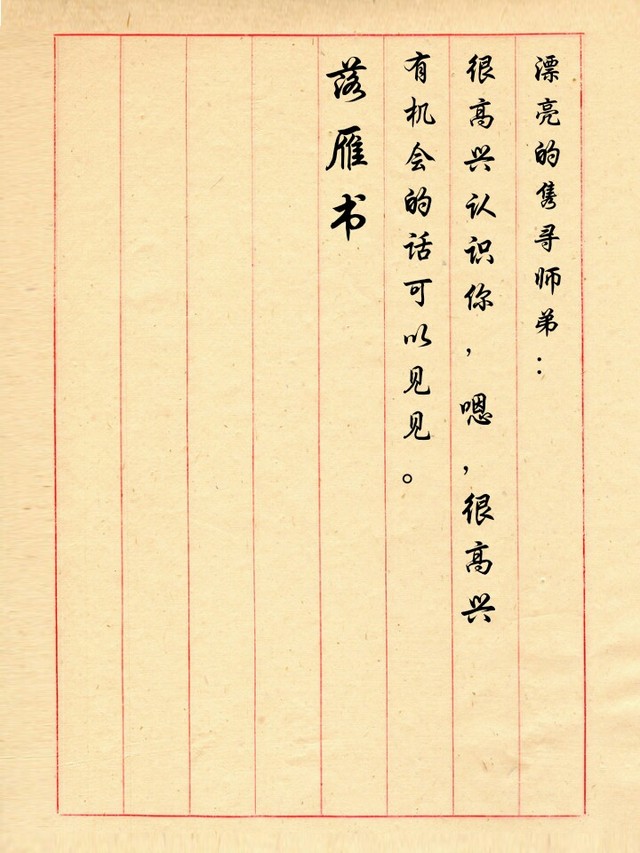 漂亮的隽寻师弟：
很高兴认识你，嗯，很高兴
有机会的话可以见见。
落雁书